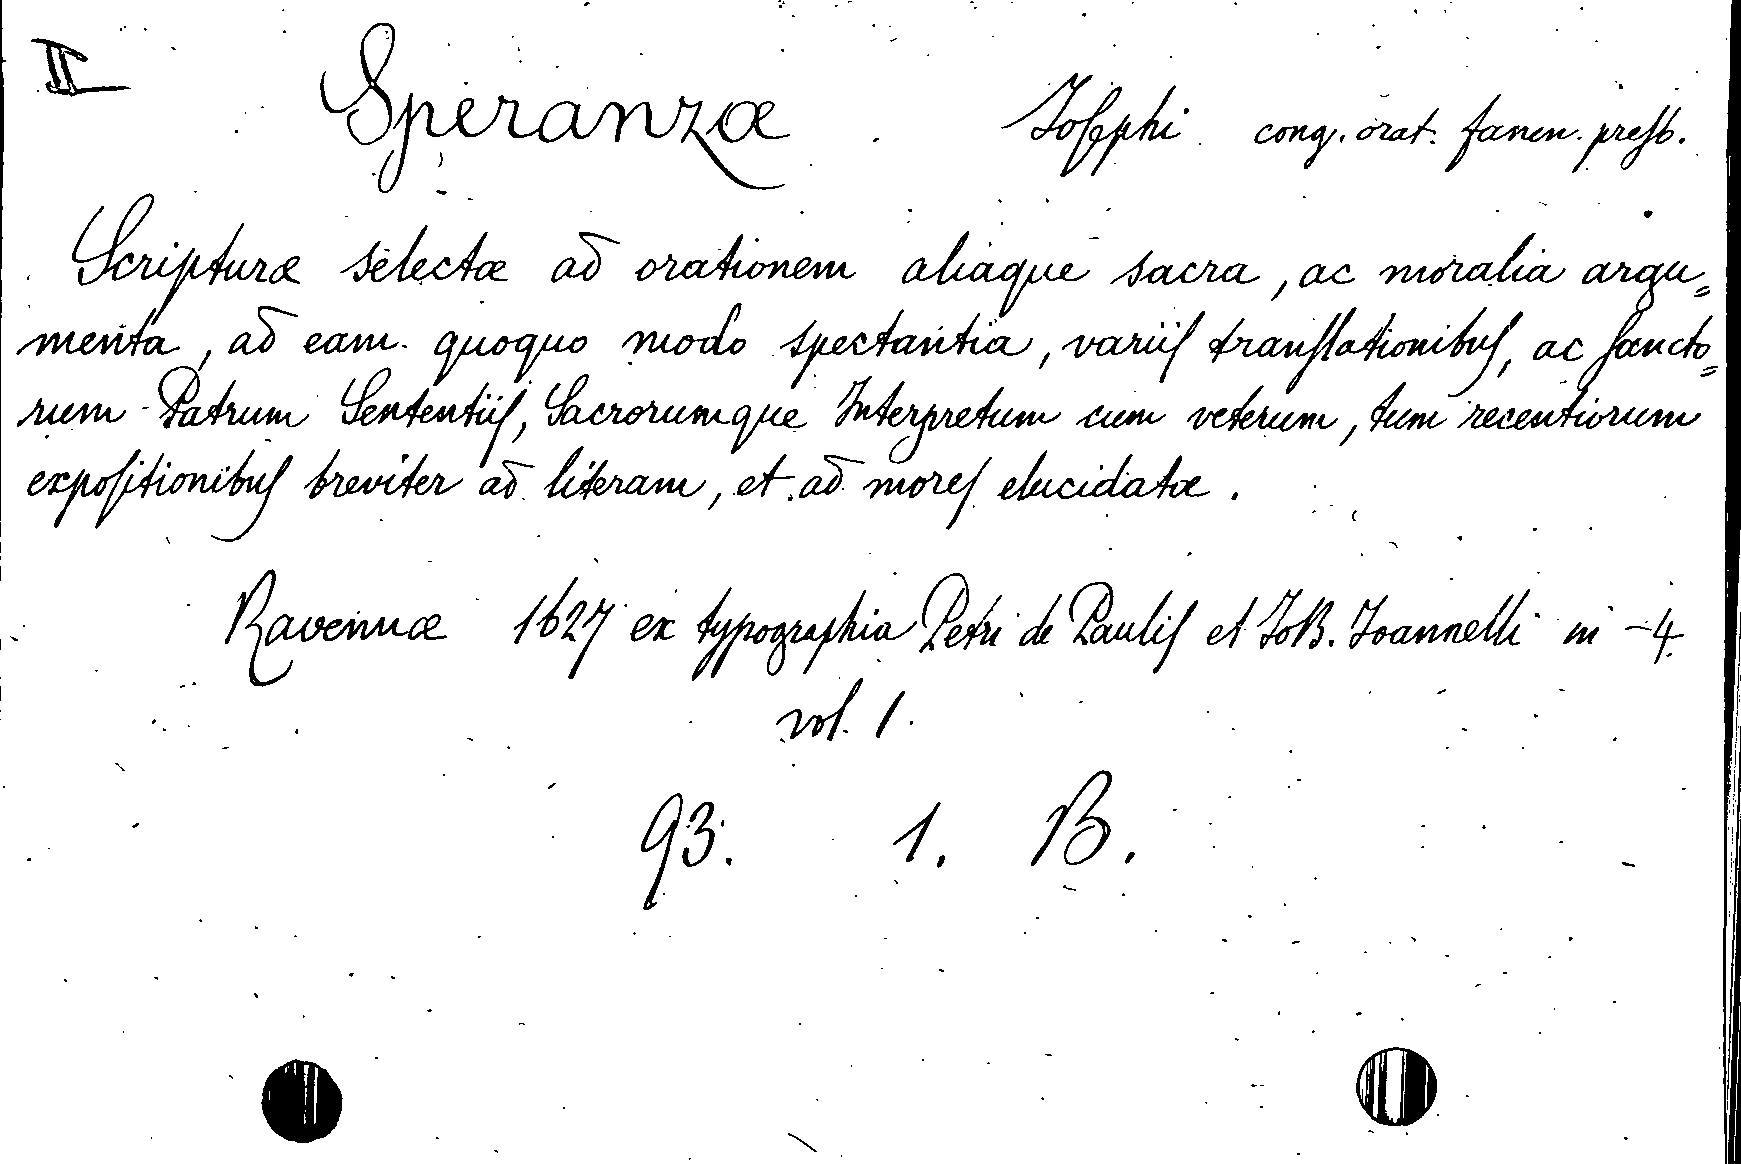 II Speranzæ Josephi cong. orat. fanen. presb.
Scripturæ selectæ ad orationem aliaque sacra, ac moralia argu=
menta, ad eam quoquo modo spectantia, variis translationibus, ac sancto=
rum Patrum Sententiis, Sacrorumque Interpretum cum veterum, tum recentiorum
expositionibus breviter ad literam, et ad mores elucidatæ.
Ravennæ 1627 ex typographia Petri de Paulis et JoB. Joannelli in -4.
vol. 1.
93. 1. B.